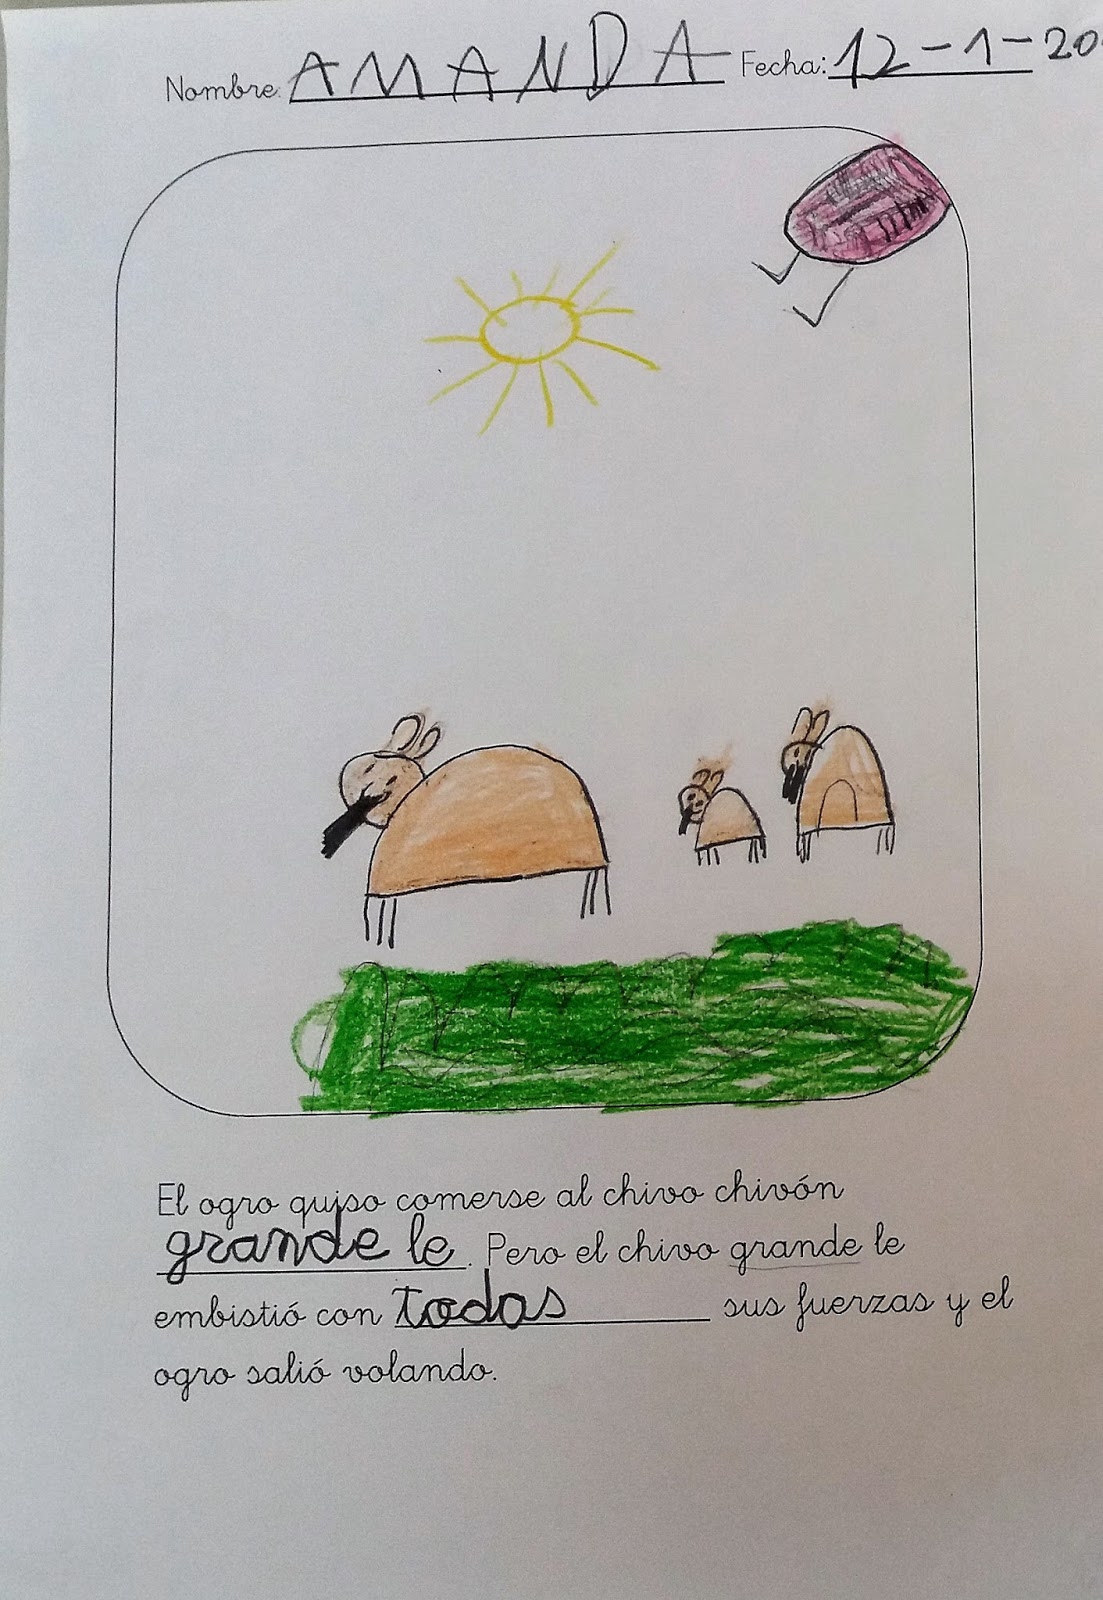 Nombre: AMANDA Fecha: 12-1-20
El ogro quiso comerse al chivo chivón
grande le. Pero el chivo grande le
embistió con todas sus fuerzas y el
ogro salió volando.